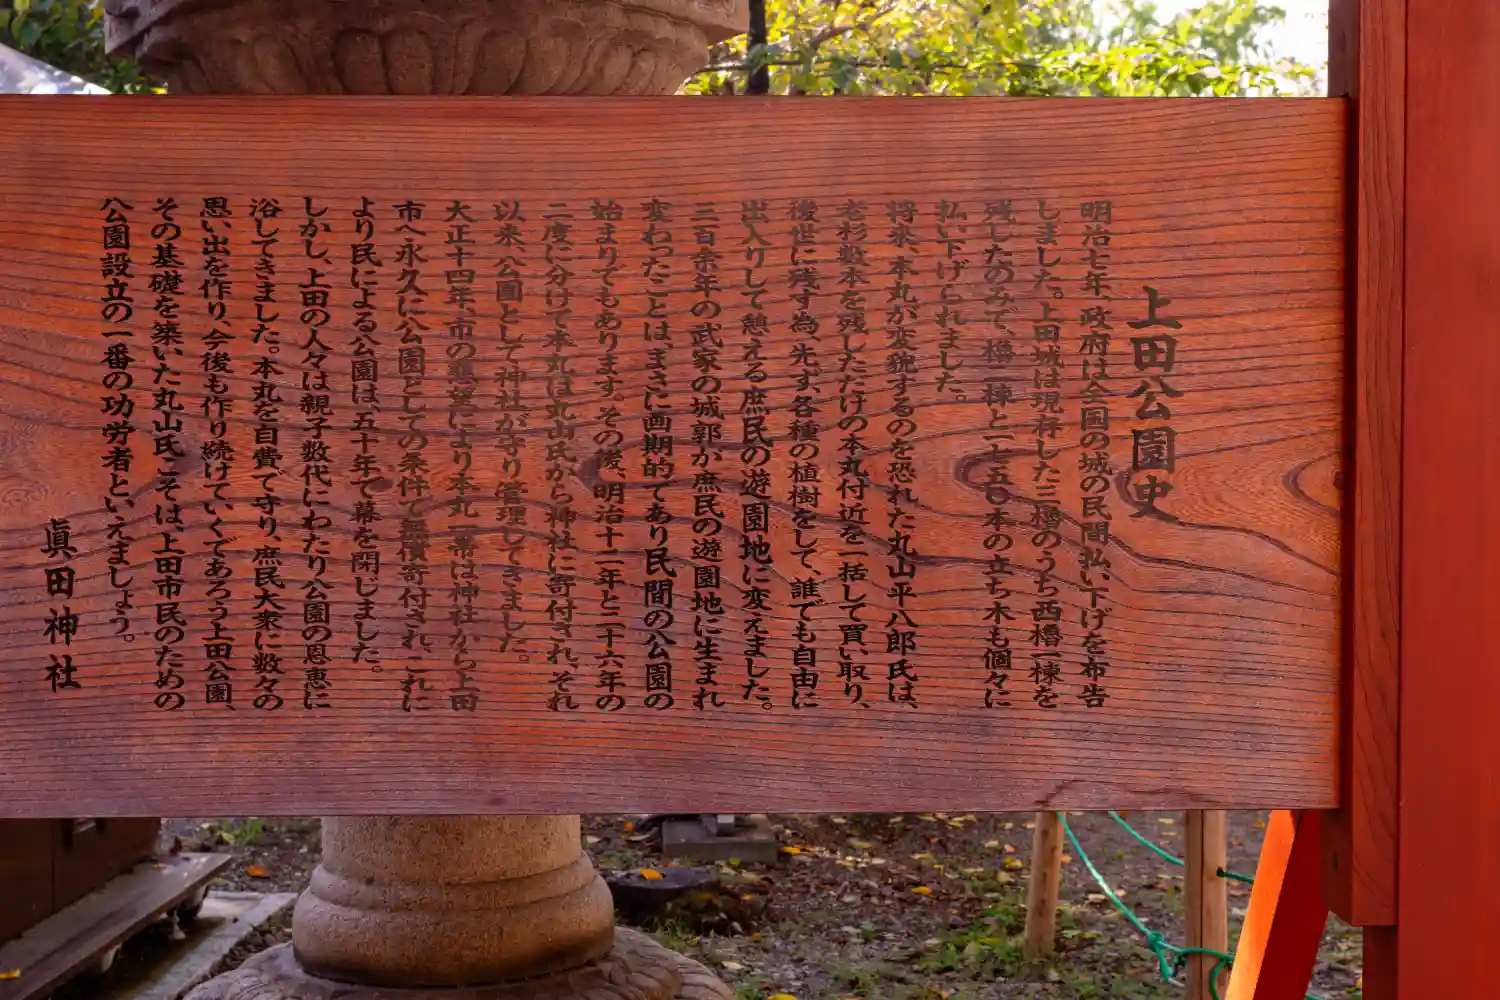 上田公園史
明治七年、政府は全国の城の民間払い下げを布告
しました。上田城は現存した三櫓のうち西櫓一棟を
残したのみで、櫓一棟と一七五〇本の立ち木も個々に
払い下げられました。
将来、本丸が変貌するのを恐れた丸山平八郎氏は、
老杉数本を残しただけの本丸付近を一括して買い取り、
後世に残す為、先ず、各種の植樹をして、誰でも自由に
出入りして憩える庶民の遊園地に変えました。
三百余年の武家の城郭が庶民の遊園地に生まれ
変わったことは、まさに画期的であり民間の公園の
始まりでもあります。その後、明治十二年と二十六年の
二度に分けて本丸は丸山氏から神社に寄付され、それ
以来、公園として神社が守り管理してきました。
大正十四年、市の懇望により本丸一帯は神社から上田
市へ永久に公園としての条件で無償寄付され、これに
より民による公園は、五十年で幕を閉じました。
しかし、上田の人々は親子数代にわたり公園の恩恵に
浴してきました。本丸を自費で守り、庶民大衆に数々の
思い出を作り、今後も作り続けていくであろう上田公園、
その基礎を築いた丸山氏こそは、上田市民のための
公園設立の一番の功労者といえましょう。
眞田神社